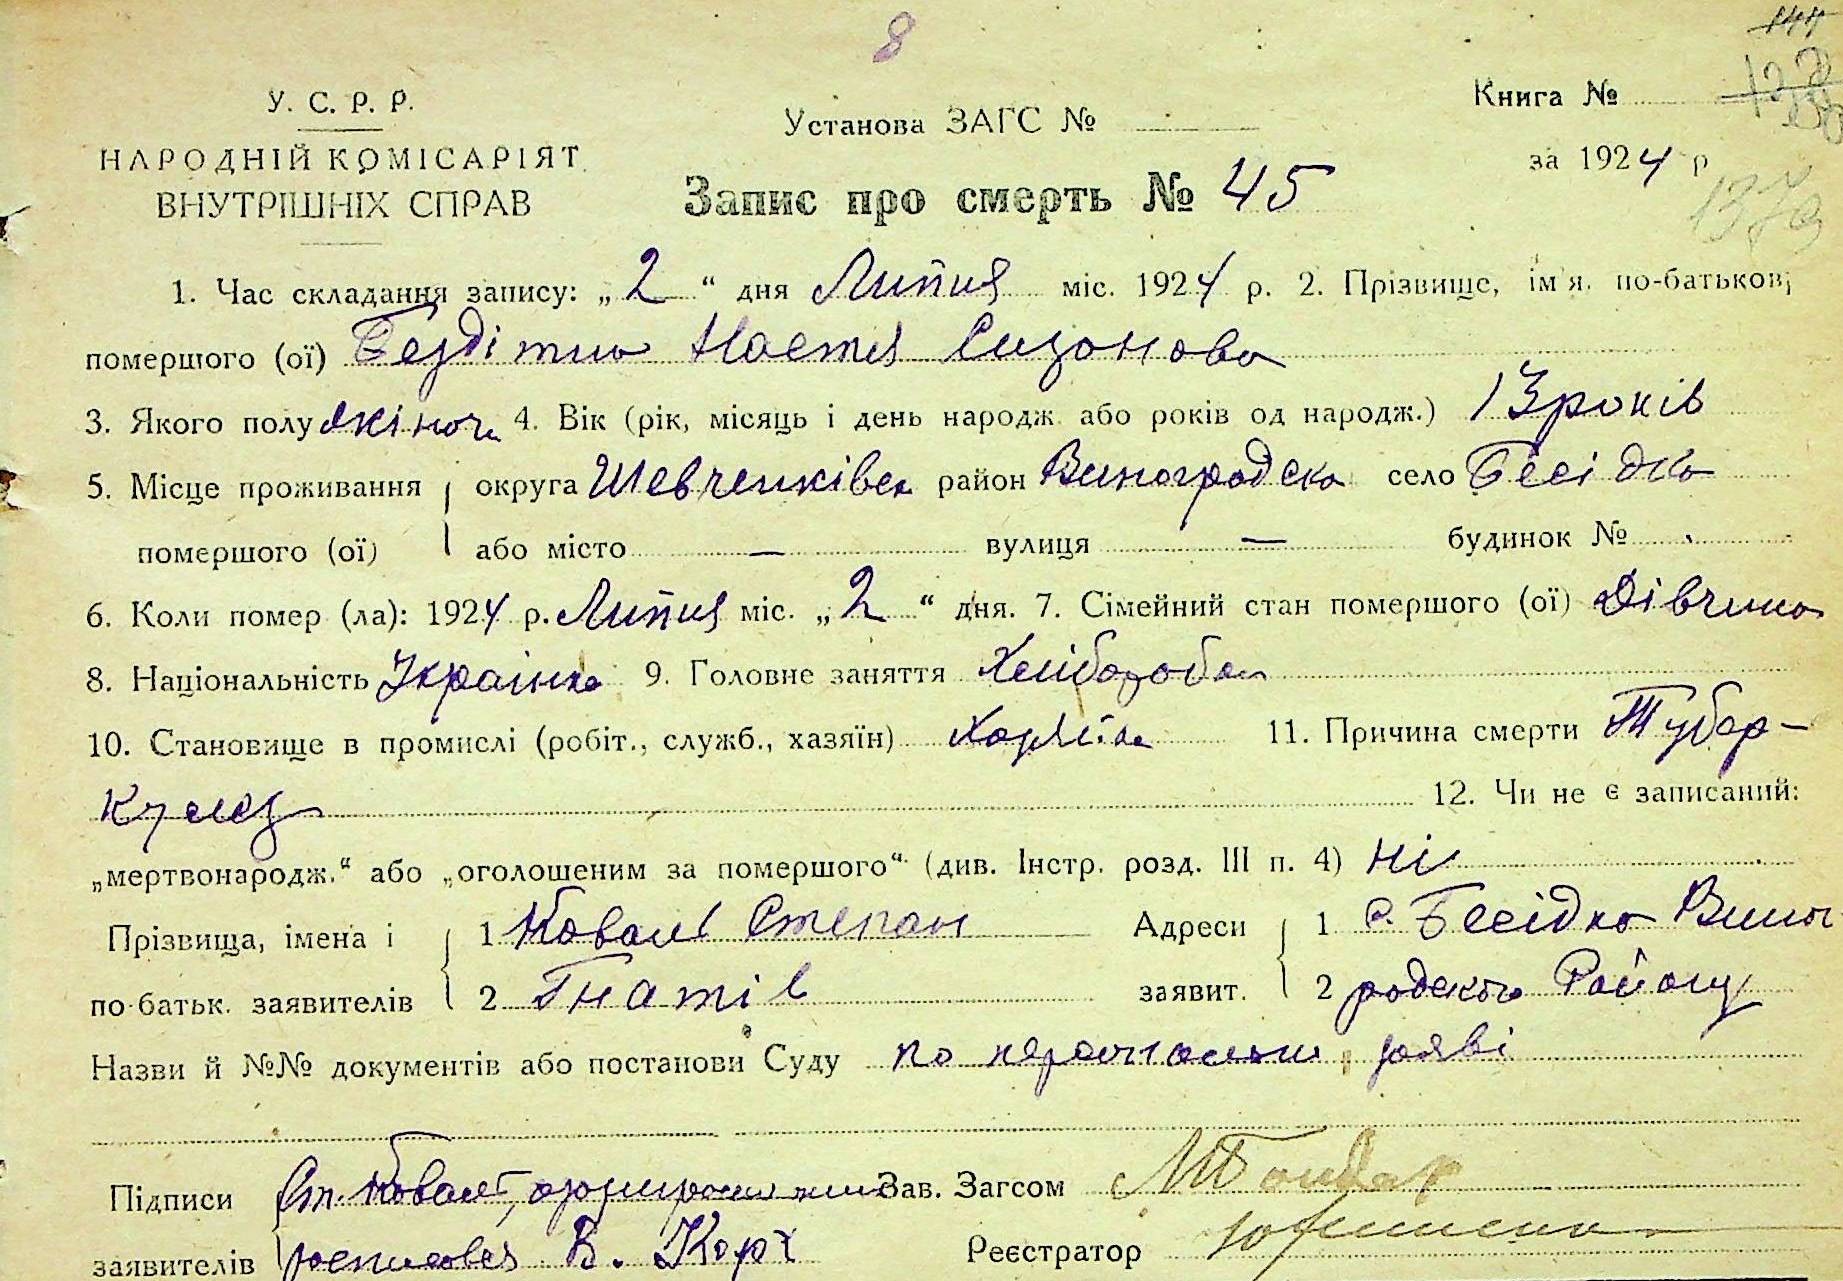 8
144
У. С. Р. Р.
НАРОДНІЙ КОМІСАРІЯТ
ВНУТРІШНІХ СПРАВ
Установа ЗАГС №
Книга №
за 1924 р
Запис про смерть № 45
1. Час складання запису: „2“ дня Липня міс. 1924 р. 2. Прізвище, ім'я, по-батькові
помершого (ої) Бездітна Настя Сизонова
3. Якого полу жіноч 4. Вік (рік, місяць і день народж. або років од народж.) 13 років
5. Місце проживання округа Шевченківск район Виноградска село Бесідка
помершого (ої) або місто — вулиця — будинок №
6. Коли помер (ла): 1924 р. Липня міс. „2“ дня. 7. Сімейний стан помершого (ої) Дівчина
8. Національність Українка 9. Головне заняття
10. Становище в промислі (робіт., служб., хазяїн) 11. Причина смерти Тубер-
кулез 12. Чи не є записаний:
„мертвонародж.“ або „оголошеним за помершого“ (див. Інстр. розд. III п. 4) ні
Прізвища, імена і 1 Коваль Степан Адреси 1 с. Бесідка Виног
по-батьк. заявителів 2 Гнатів заявит. 2 радского Району
Назви й №№ документів або постанови Суду по заяві
Підписи Ст. Коваль, Зав. Загсом МБондар
заявителів В. Корж Реєстратор